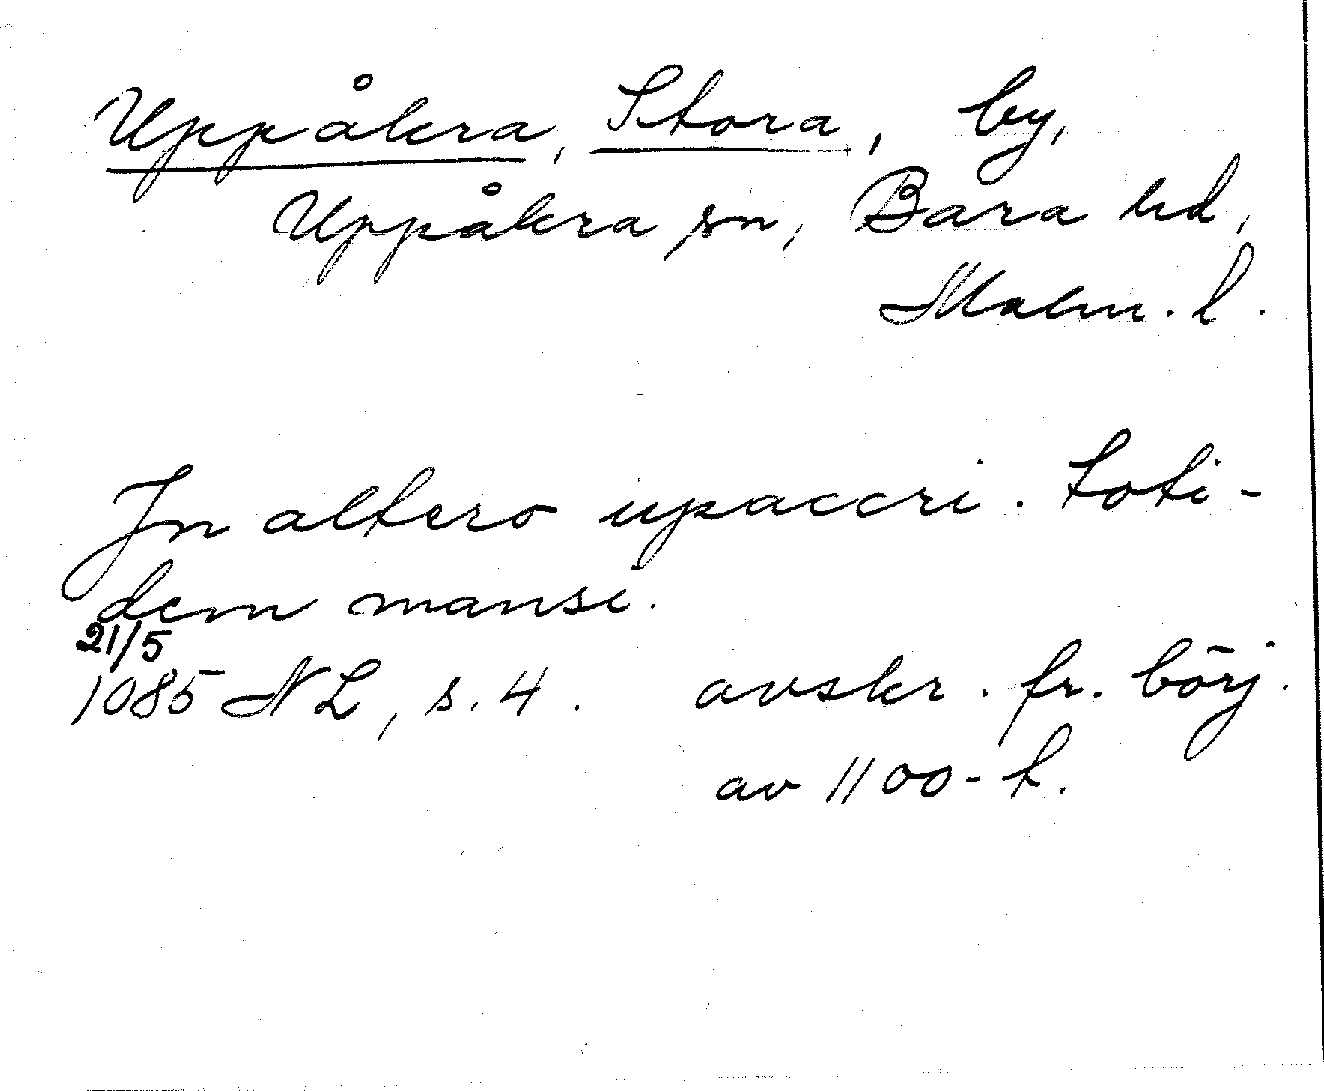 Uppåkra, Stora, by,
Uppåkra sn, Bara hd,
Malm. l.
In altero upaccri. toti-
dem mansi.
21/5
1085 NL, s. 4. avskr. fr. börj.
av 1100-t.